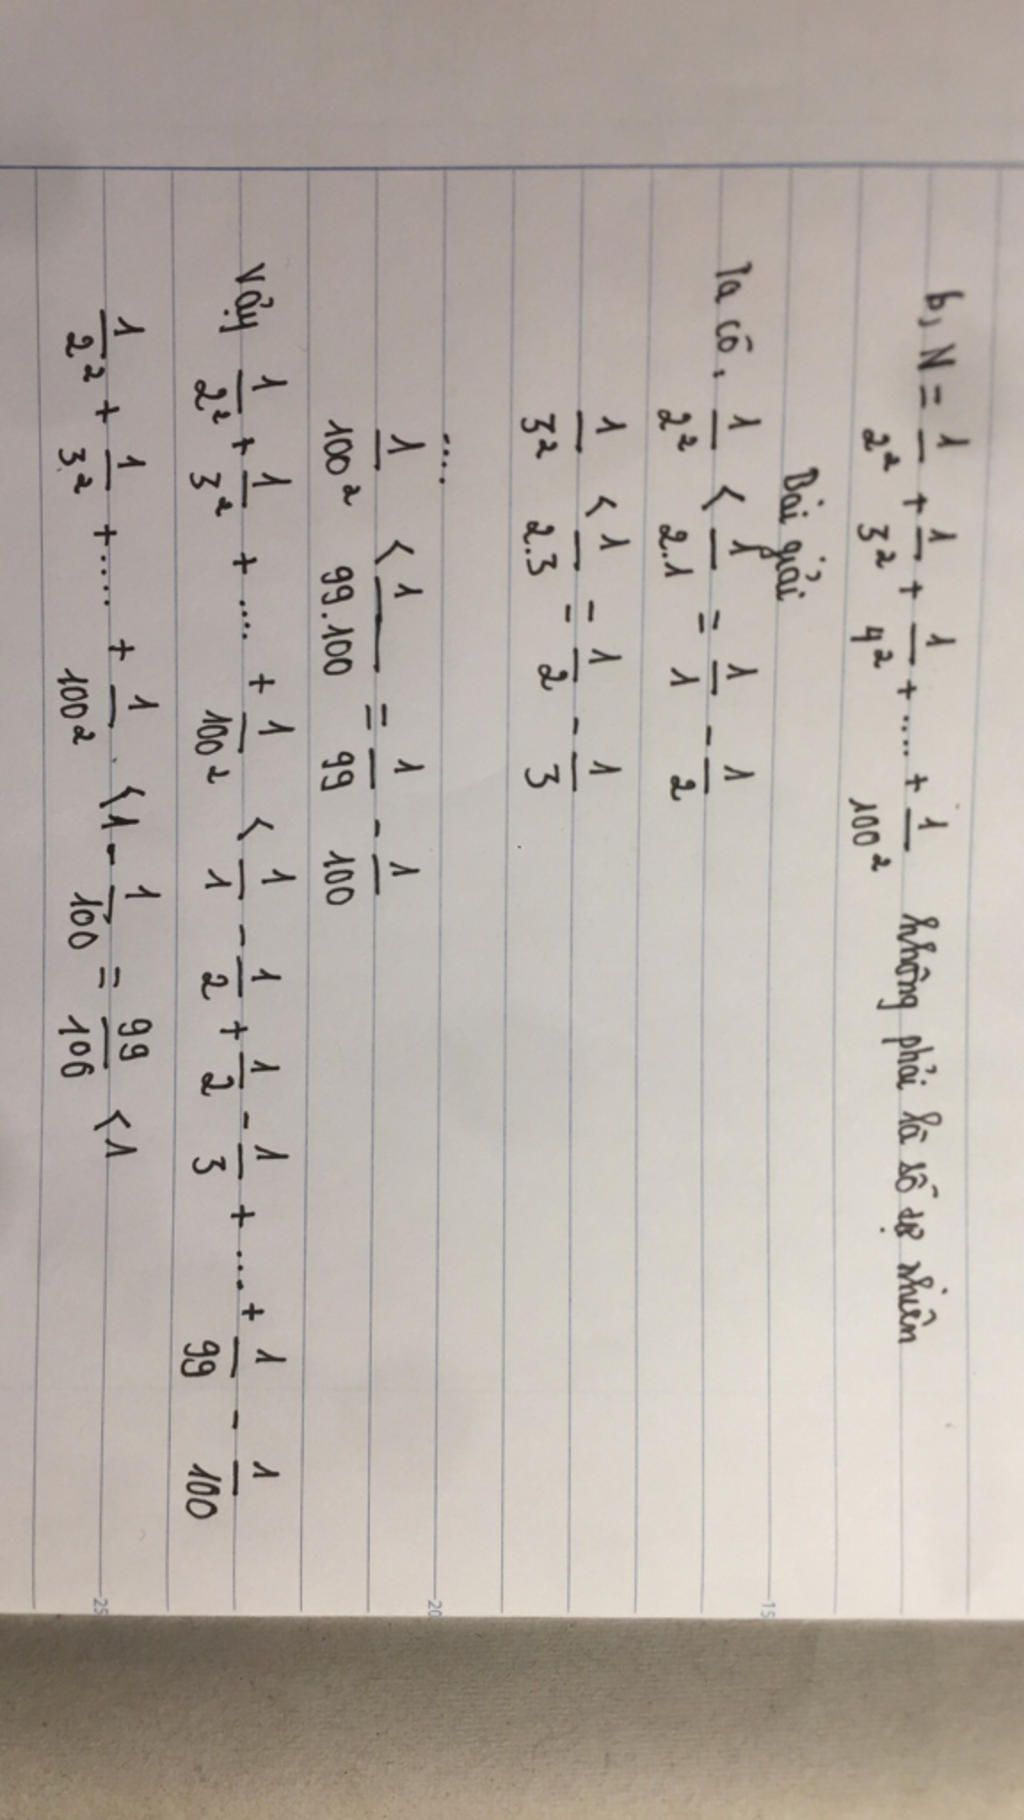 b, N = 1/2² + 1/3² + 1/4² + .... + 1/100² không phải là số tự nhiên
Bài giải
Ta có, 1/2² < 1/2.1 = 1/1 - 1/2
1/3² < 1/2.3 = 1/2 - 1/3
....
1/100² < 1/99.100 = 1/99 - 1/100
Vậy 1/2² + 1/3² + .... + 1/100² < 1/1 - 1/2 + 1/2 - 1/3 + .... + 1/99 - 1/100
1/2² + 1/3² + ..... + 1/100² < 1 - 1/100 = 99/100 < 1
15
20
25